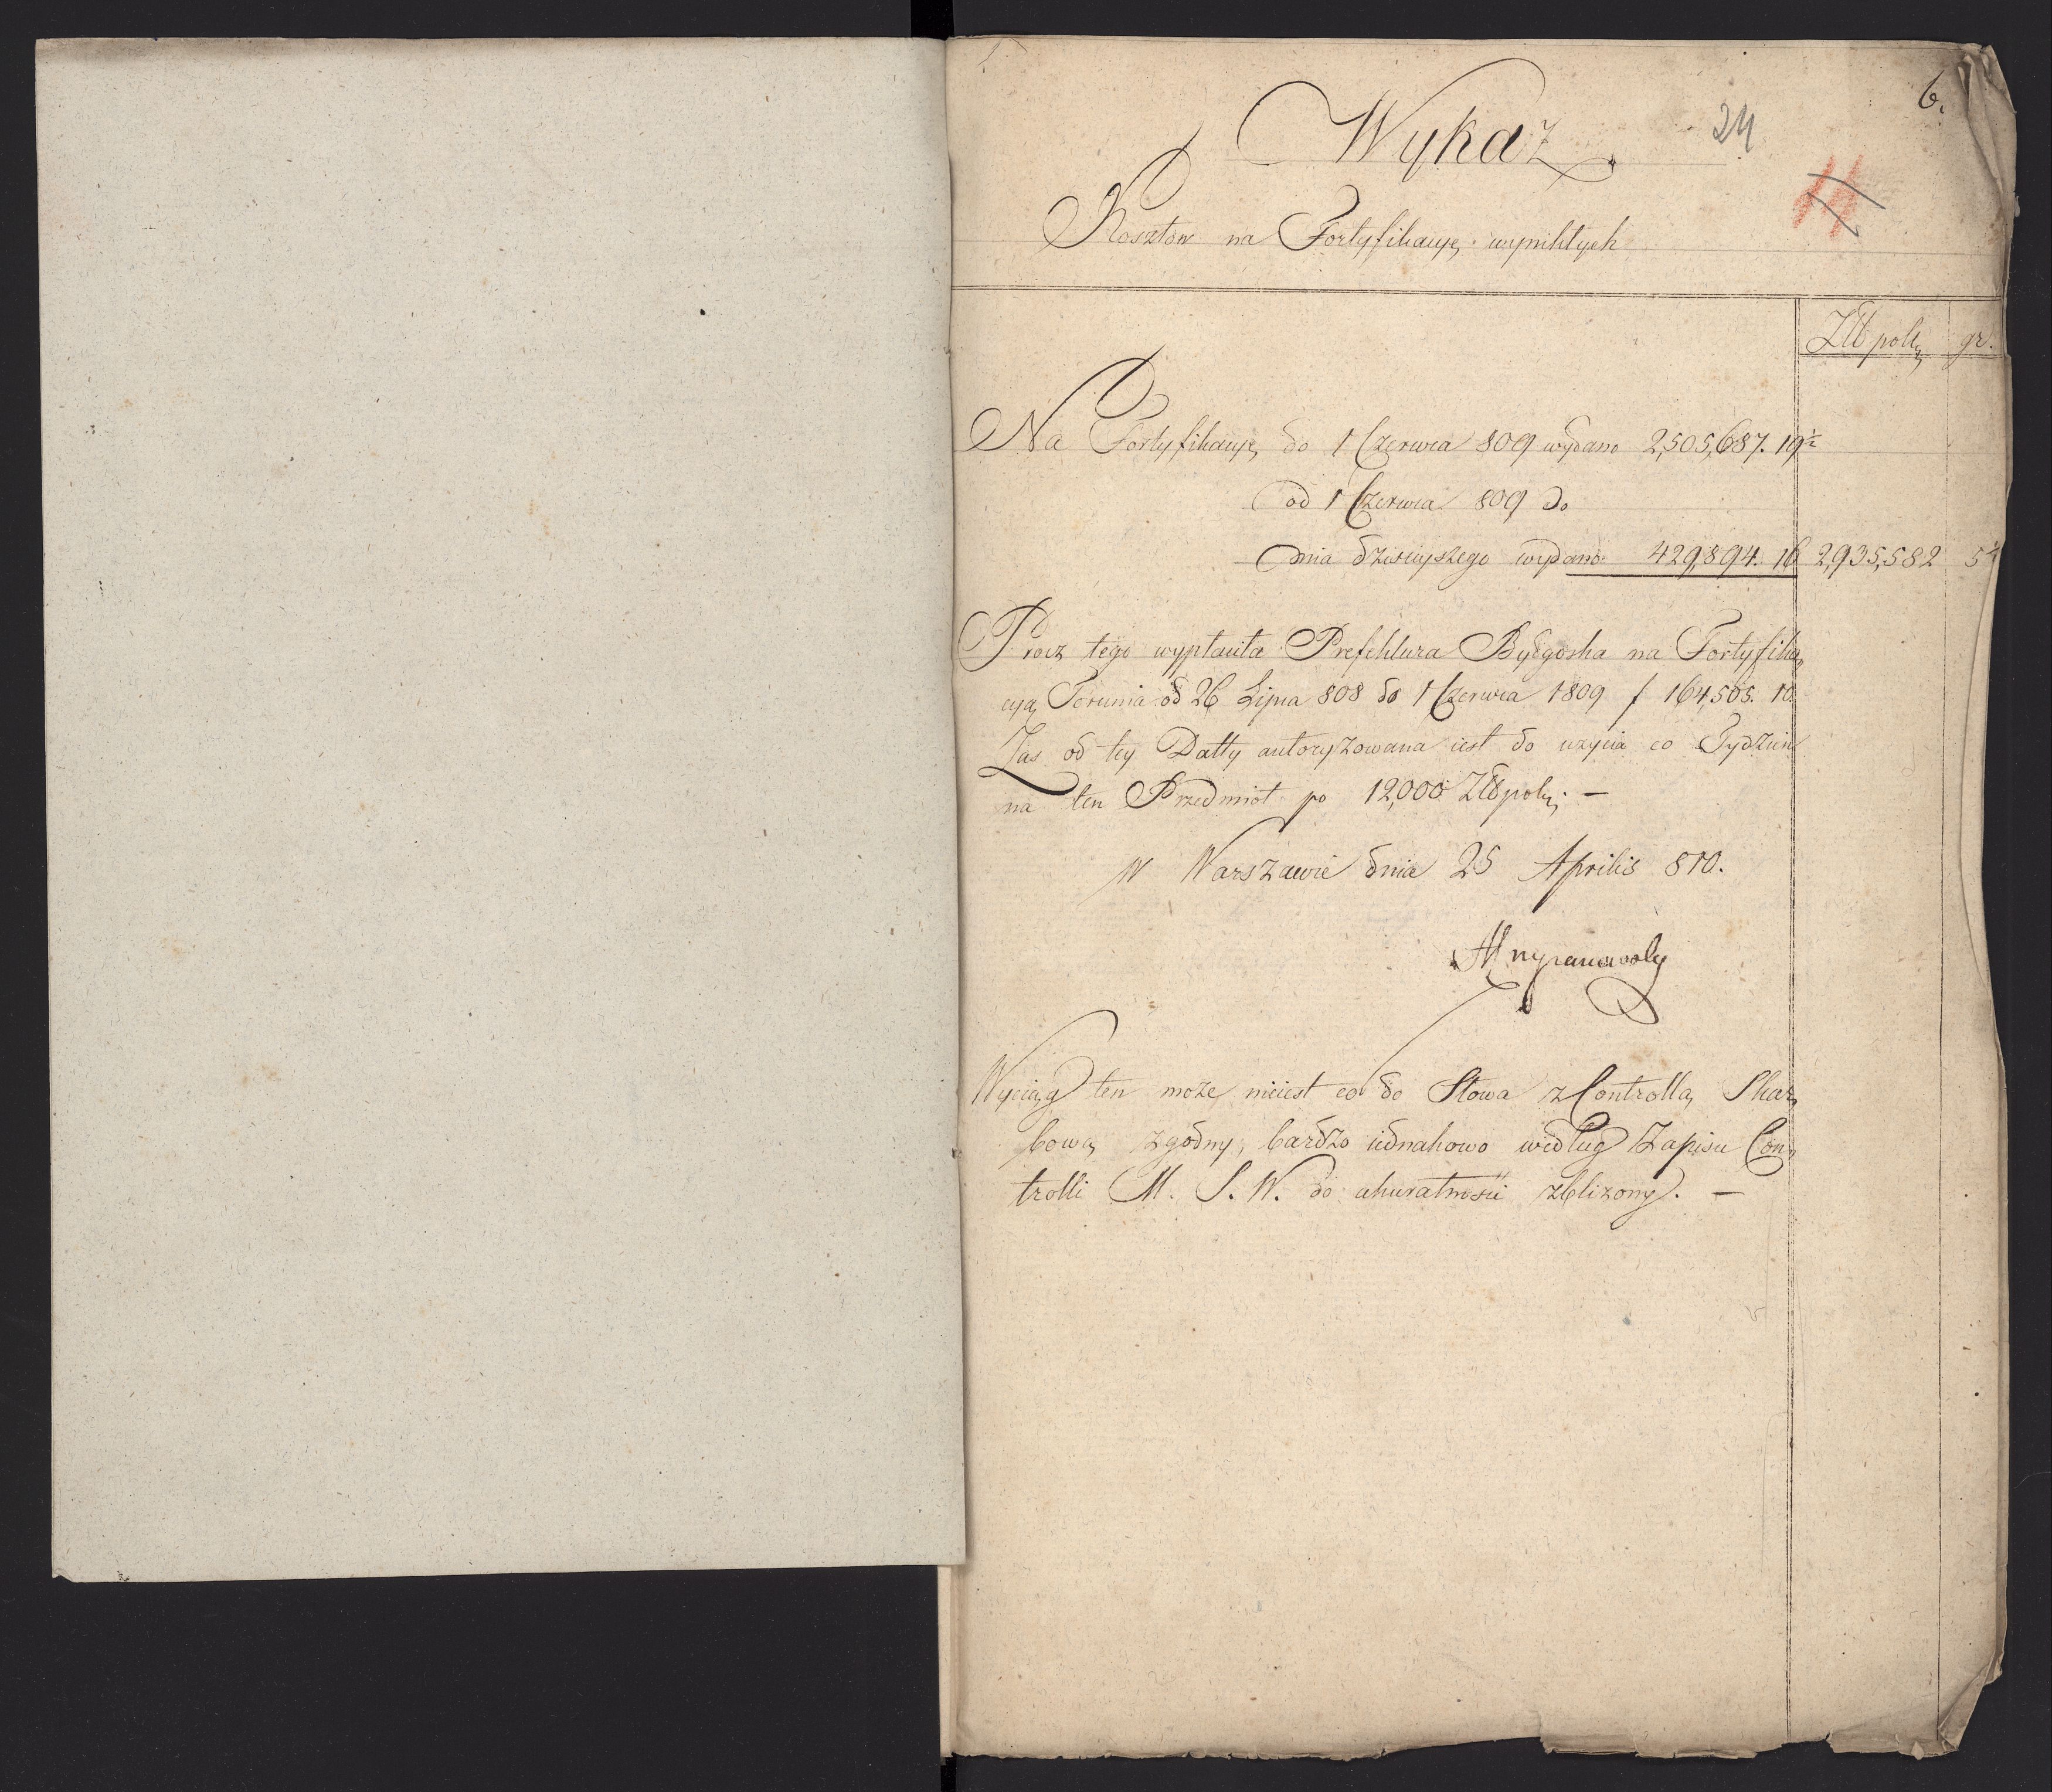 6.
24
Wykaz
Kosztow na Fortyfikacyę wynikłych
Złł polh gr.
Na Fortyfikacyę do 1 Czerwca 809 wydano 2,505,687. 19½
od 1 Czerwca 809 do
dnia dzisieyszego wydano 429,894. 16 2,935,582 5½
Procz tego wypłaciła Prefektura Bydgoska na Fortyfika„
cyą Torunia od 26 Lipca 808 do 1 Czerwca 1809 f 164,505. 10.
Zas od tey Datty autoryzowana iest do uzycia co Tydzień
na ten Przedmiot po 12,000 Złł polh. —
W Warszawie dnia 25 Aprilis 810.
Wyciąg ten może nieiest co do Słowa z Controllą Skar„
bową zgodny, bardzo iednakowo według Zapisu Con„
trolli M. S. W. do akuratności zbliżony. —